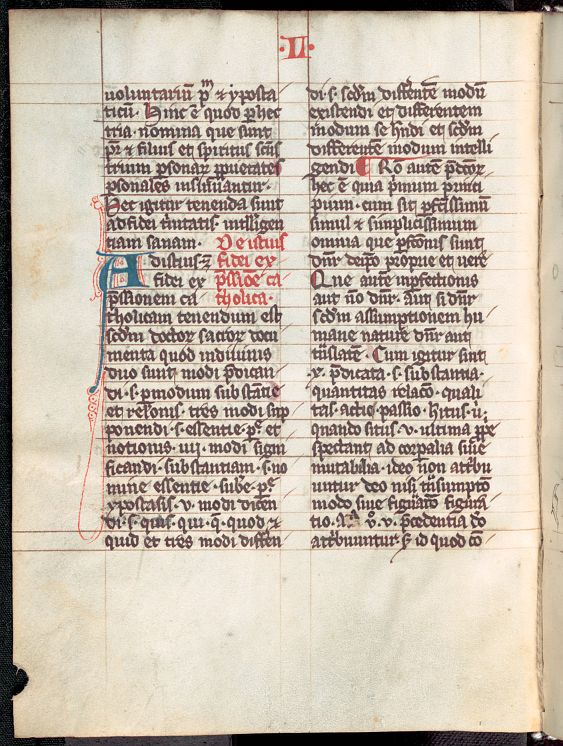 ·II·
uoluntariū pͫ ⁊ yposta
ticū. Hinc ē quod p̄hec
tria nomina que sunt
pr̄ & filius et spiritus scūs
trium psonaꝝ ꝓprietates
psonales insinuantur.
Hec igitur tenenda sunt
ad fidei t̄nitatis intelligen
tiam sanam. De istius
Ad istius ⁊ fidei ex
fidei ex p̄ssiōe ca
p̄ssionem ca tholica.
tholicam tenendum est
scd̄m doctoꝝ sacroꝝ docu
menta quod in diuinis
duo sunt modi p̄dican
di .s. p modum substātie
et relōnis. tres modi supp
ponendi .s. essentie. pͤ. et
notionis. iiij. modi signi
ficandi. substantiam .s. no
mine essentie. sube. pͤ.
ypostasis. v. modi dicen
di .s. quis. qui. q̄. quod ⁊
quid et tres modi differen
di .s. scd̄m differētē modū
existendi et differentem
modum se h̄ndi et scd̄m
differētē modum intelli
gendi. Rō autē p̄dctoꝝ
hec ē quia p̄mum princi
pium. cum sit ꝑfctissimū
simul & simplicissimum
omnia que ꝑfctionis sunt
dn̄r de ip̄o proprie et uere
Que autē inperfectionis
aut nō dn̄r. aut si dn̄r
scd̄m assumptionem hu
mane nature dn̄r aut
tn̄slatē. Cum igitur sint
x. p̄dicata .s. substantia.
quantitas relacō. quali
tas. actio. passio. hitus. ů.
quando situs. v. ultima ꝓp̄e
spectant ad corpalia siue
mutabilia. ideo non att̄bu
untur deo nisi tn̄sumptō
modo siue figuratō figura
tio. v. p̄cedentia dō
att̄buuntur s̄ id quod cō